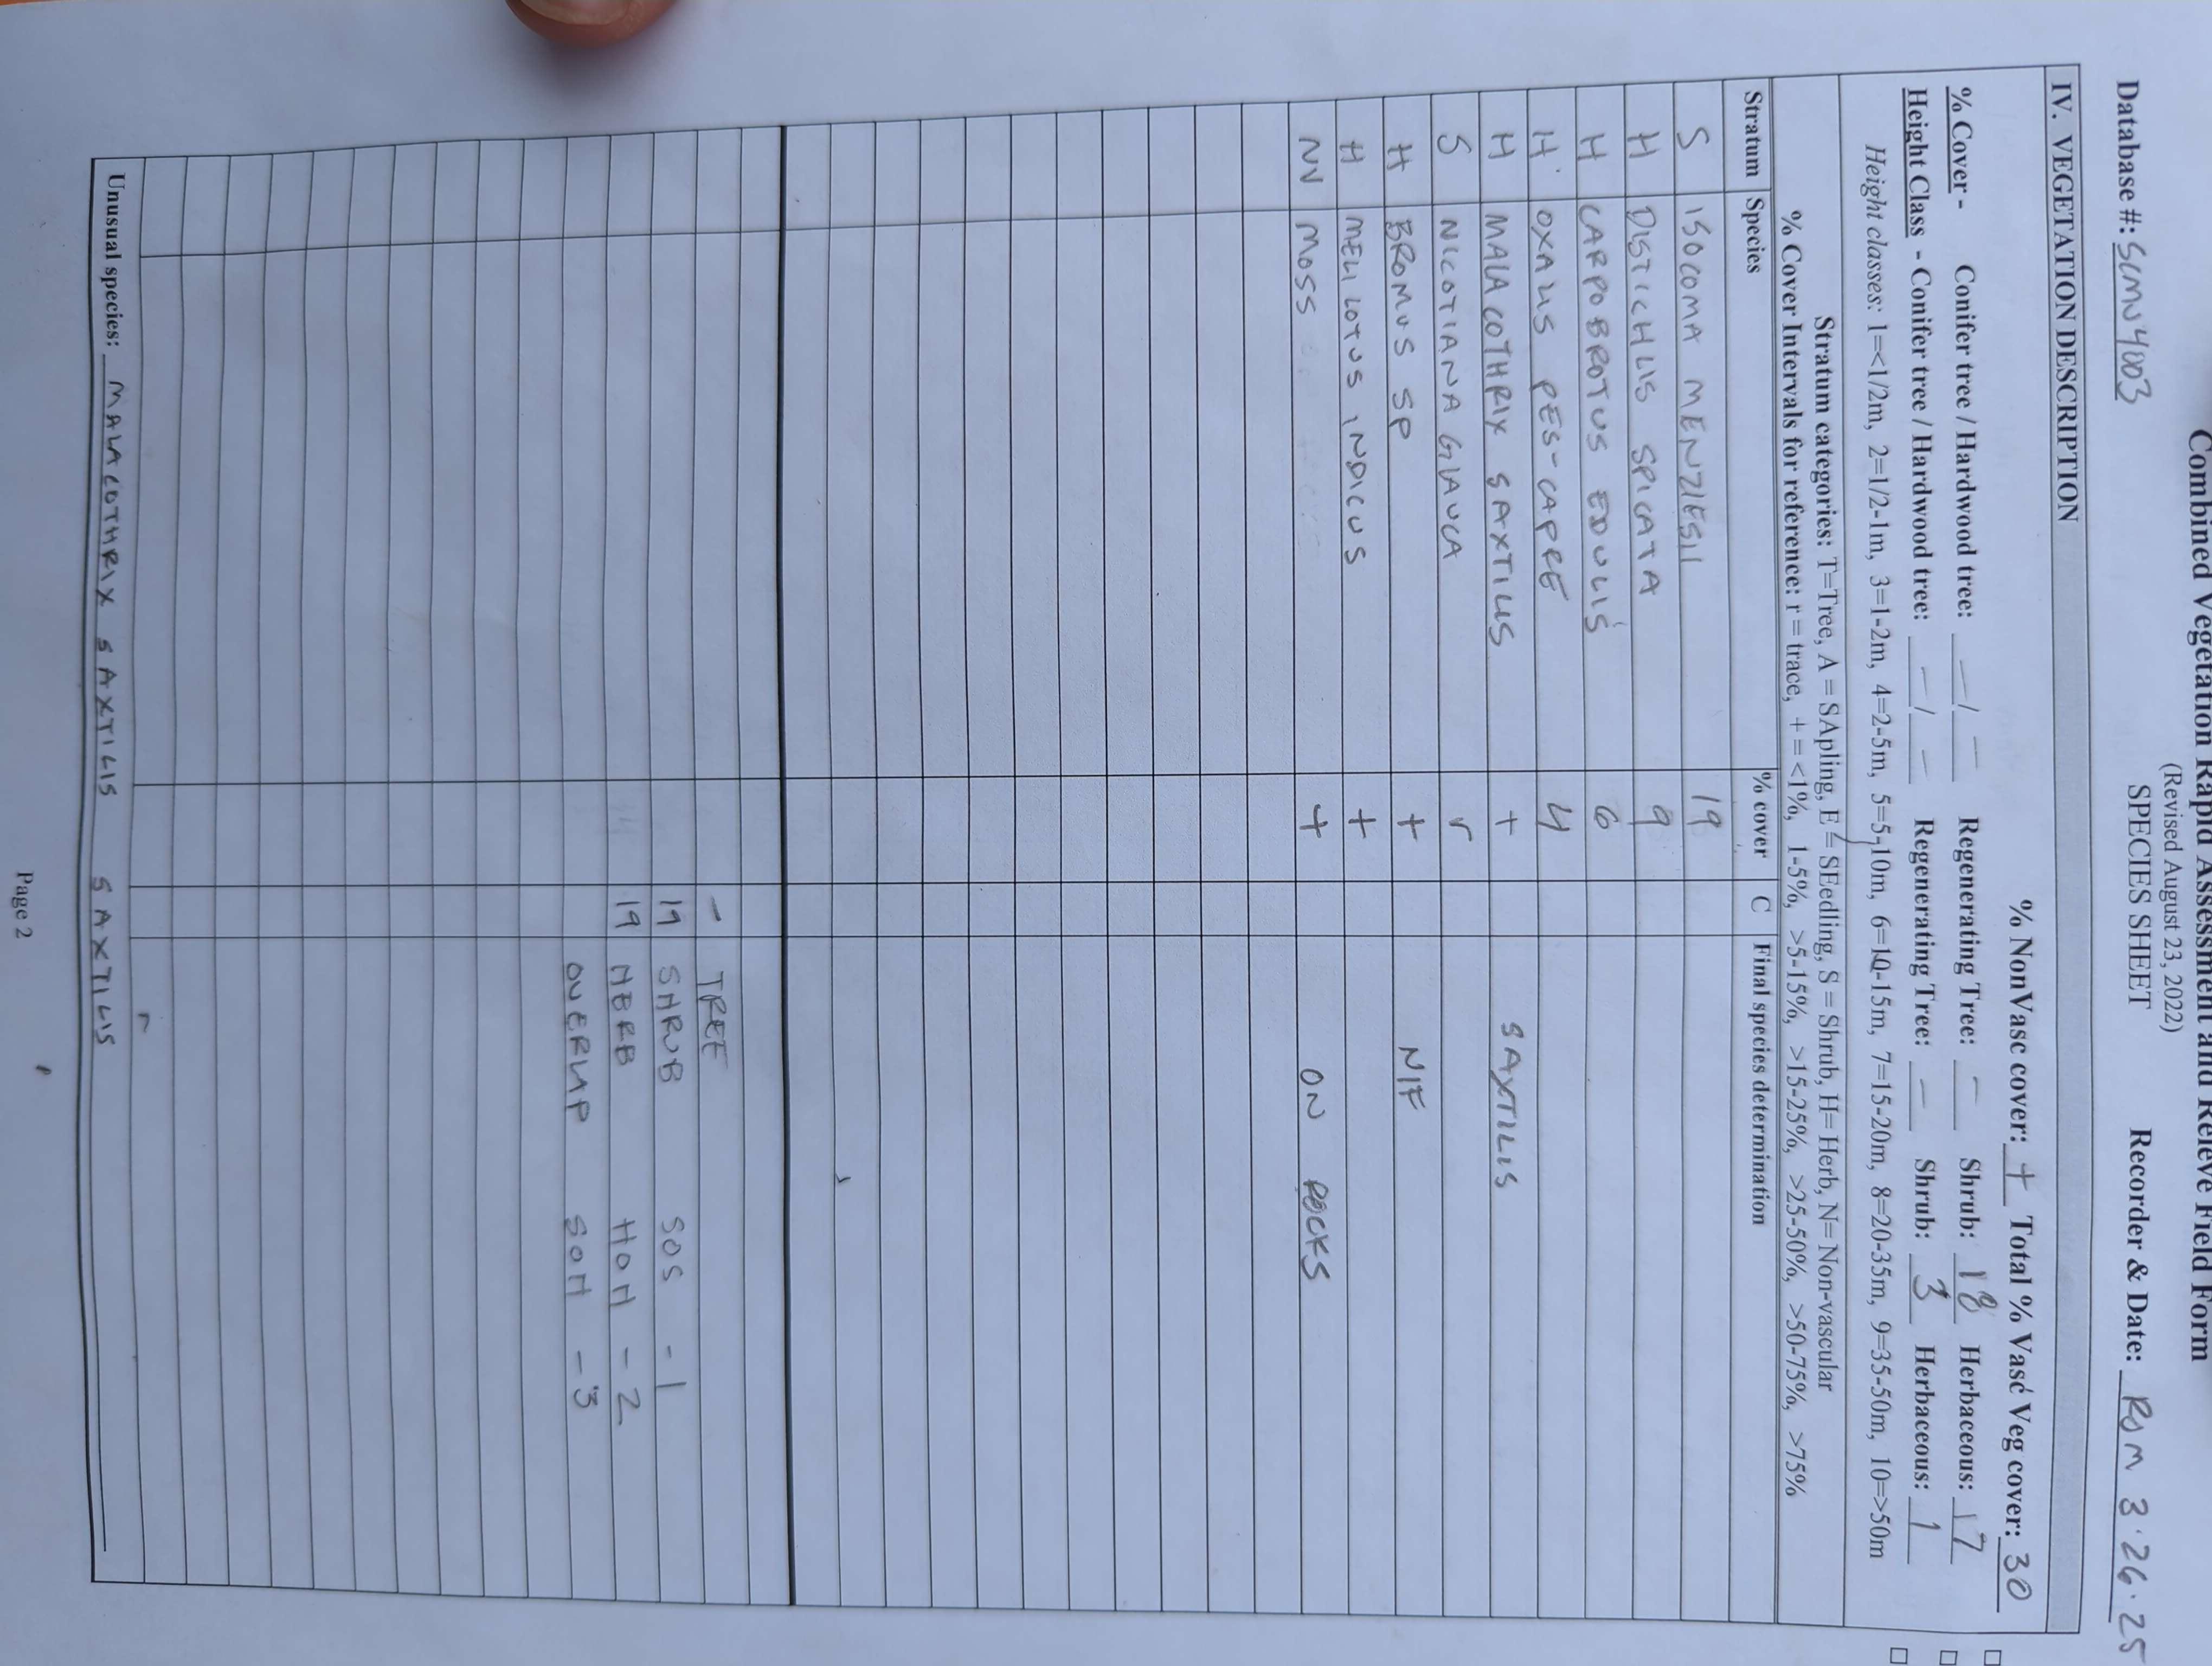 Combined Vegetation Rapid Assessment and Relevé Field Form
(Revised August 23, 2022)
SPECIES SHEET
Database #: SCMN4003 Recorder & Date: RJM 3.26.25
IV. VEGETATION DESCRIPTION
% NonVasc cover: + Total % Vasc Veg cover: 30
% Cover - Conifer tree / Hardwood tree: - / - Regenerating Tree: - Shrub: 18 Herbaceous: 17
Height Class - Conifer tree / Hardwood tree: - / - Regenerating Tree: - Shrub: 3 Herbaceous: 1
Height classes: 1=<1/2m, 2=1/2-1m, 3=1-2m, 4=2-5m, 5=5-10m, 6=10-15m, 7=15-20m, 8=20-35m, 9=35-50m, 10=>50m
Stratum categories: T=Tree, A = SApling, E = SEedling, S = Shrub, H= Herb, N= Non-vascular
% Cover Intervals for reference: r = trace, + = <1%, 1-5%, >5-15%, >15-25%, >25-50%, >50-75%, >75%
Stratum Species % cover C Final species determination
S ISOCOMA MENZIESII 19
H DISTICHLIS SPICATA 9
H CARPOBROTUS EDULIS 6
H OXALIS PES-CAPRE 4
H MALACOTHRIX SAXTILIS + SAXTILIS
S NICOTIANA GLAUCA r
H BROMUS SP + NIF
H MELILOTUS INDICUS +
NV MOSS + ON ROCKS
- TREE
19 SHRUB SOS - 1
19 HERB HOH - 2
OVERLAP SOH - 3
r
Unusual species: MALACOTHRIX SAXTILIS SAXTILIS
Page 2